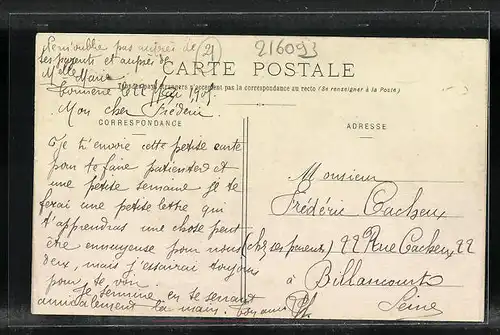 N'oublie pas auprès de
ses parents et auprès de
Melle Marie
(21)
216093
CARTE POSTALE
Tous les pays étrangers n'acceptent pas la correspondance au recto (Se renseigner à la Poste)
Mon cher Frédéric
CORRESPONDANCE
ADRESSE
Je t'envoie cette petite carte
pour te faire patienter et
une petite semaine je te
ferai une petite lettre qui
t'apprendras une chose peut
être ennuyeuse pour nous
deux, mais j'essairai toujours
pour te voir.
Je termine en te serrant
amicalement la main. Ton ami
Monsieur
Frédéric Cacheux
(chez ses parents) 22 Rue Cacheux 22
à Billancourt
Seine